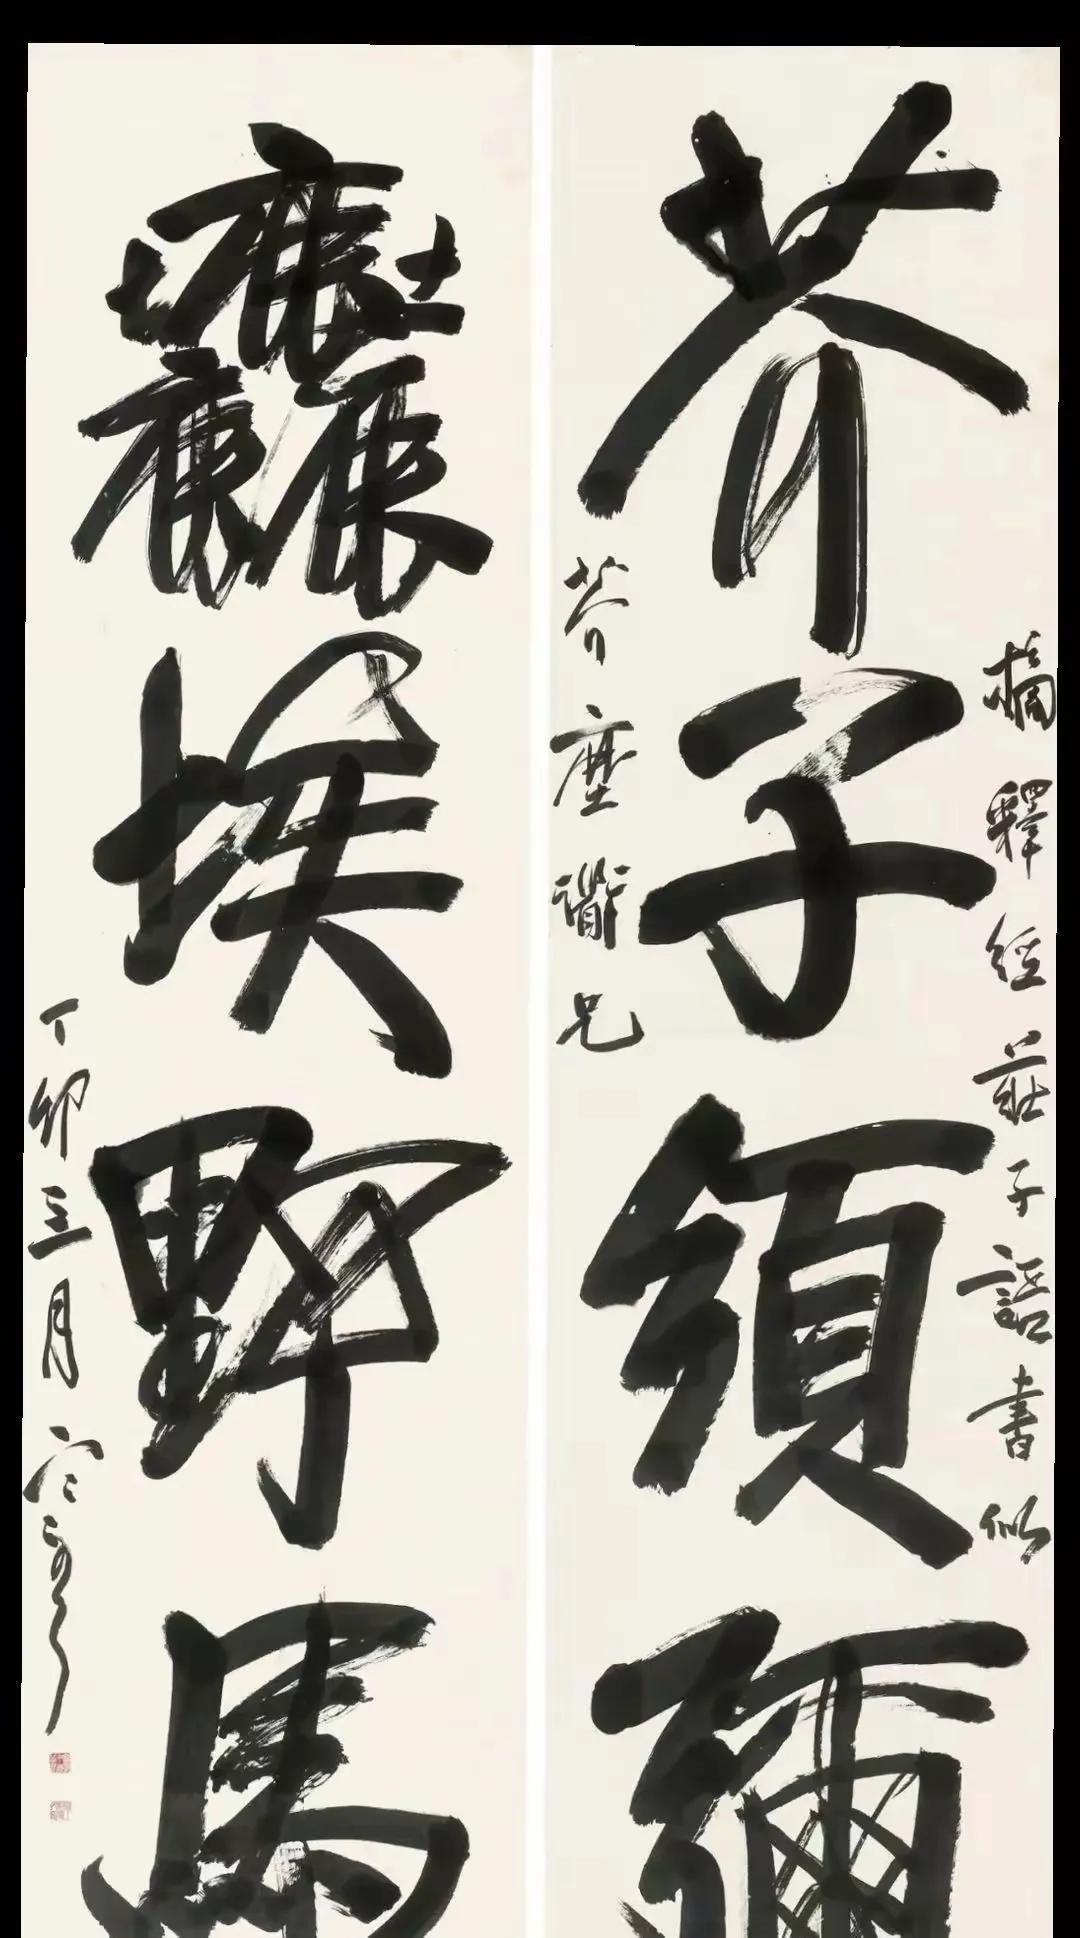 摘釋經莊子語書似
芥子須彌
芥塵衟兄
塵埃野馬
丁卯三月